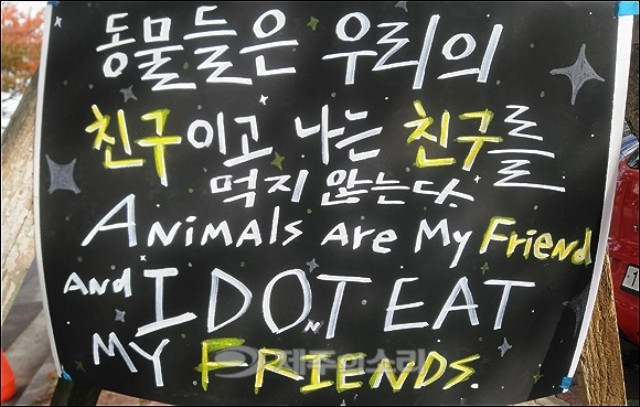 동물들은 우리의
친구이고 나는 친구를
먹지 않는다.
ANiMAls Are My Friend
AND I DO NT EAT
MY FRIENDS.
제주의소리